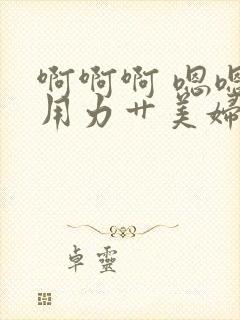 啊啊啊 嗯嗯
用力艹美婦
卓靈